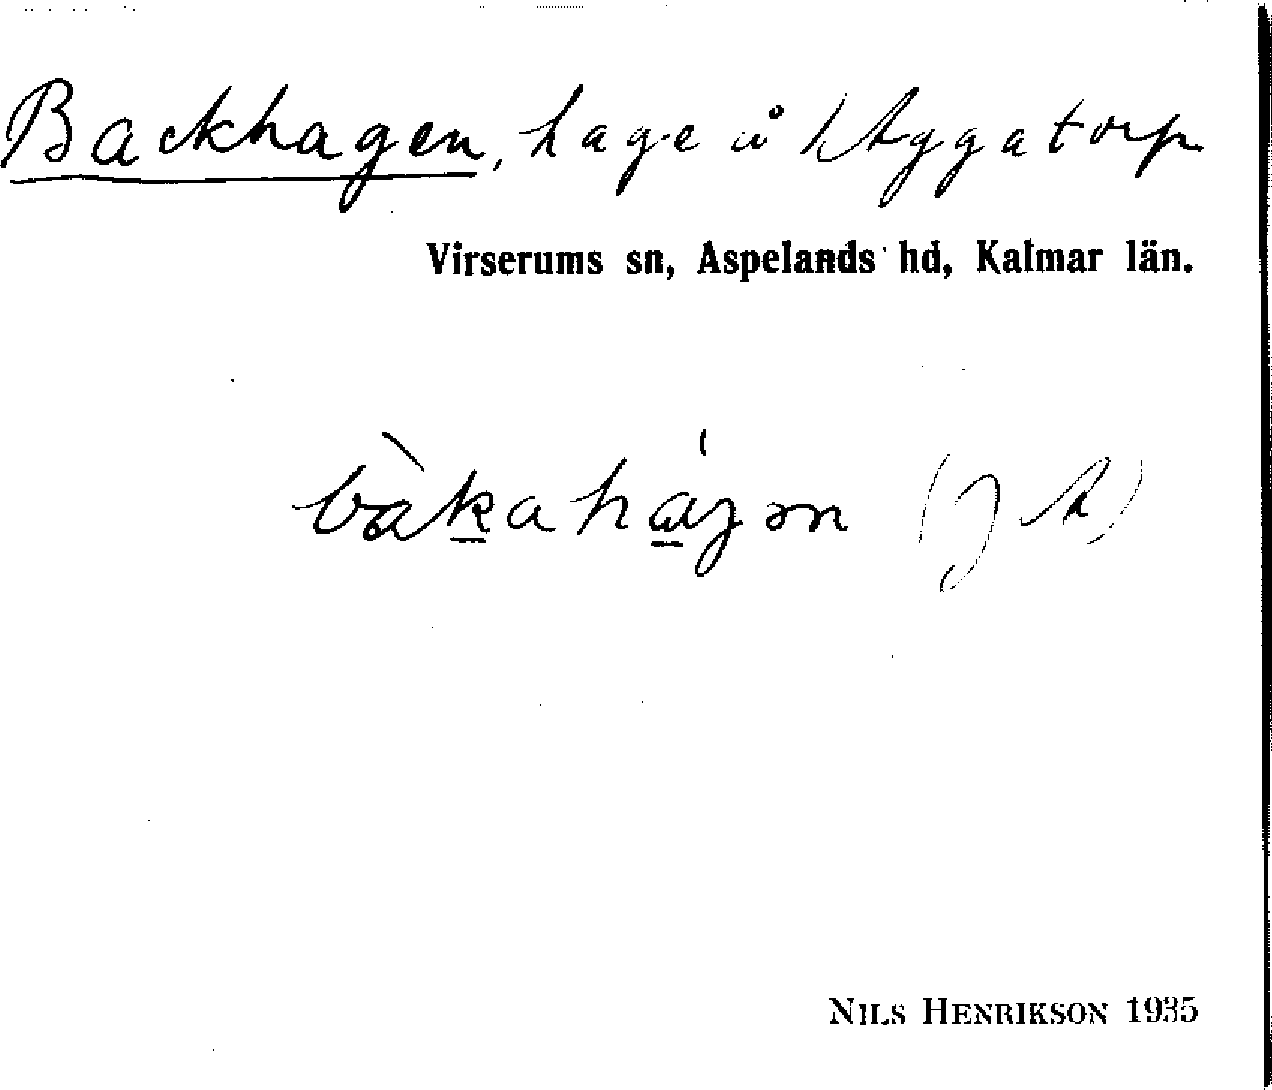 Backhagen, hage å Uggatorp
Virserums sn, Aspelands hd, Kalmar län.
bàkahágən (J A)
NILS HENRIKSON 1935